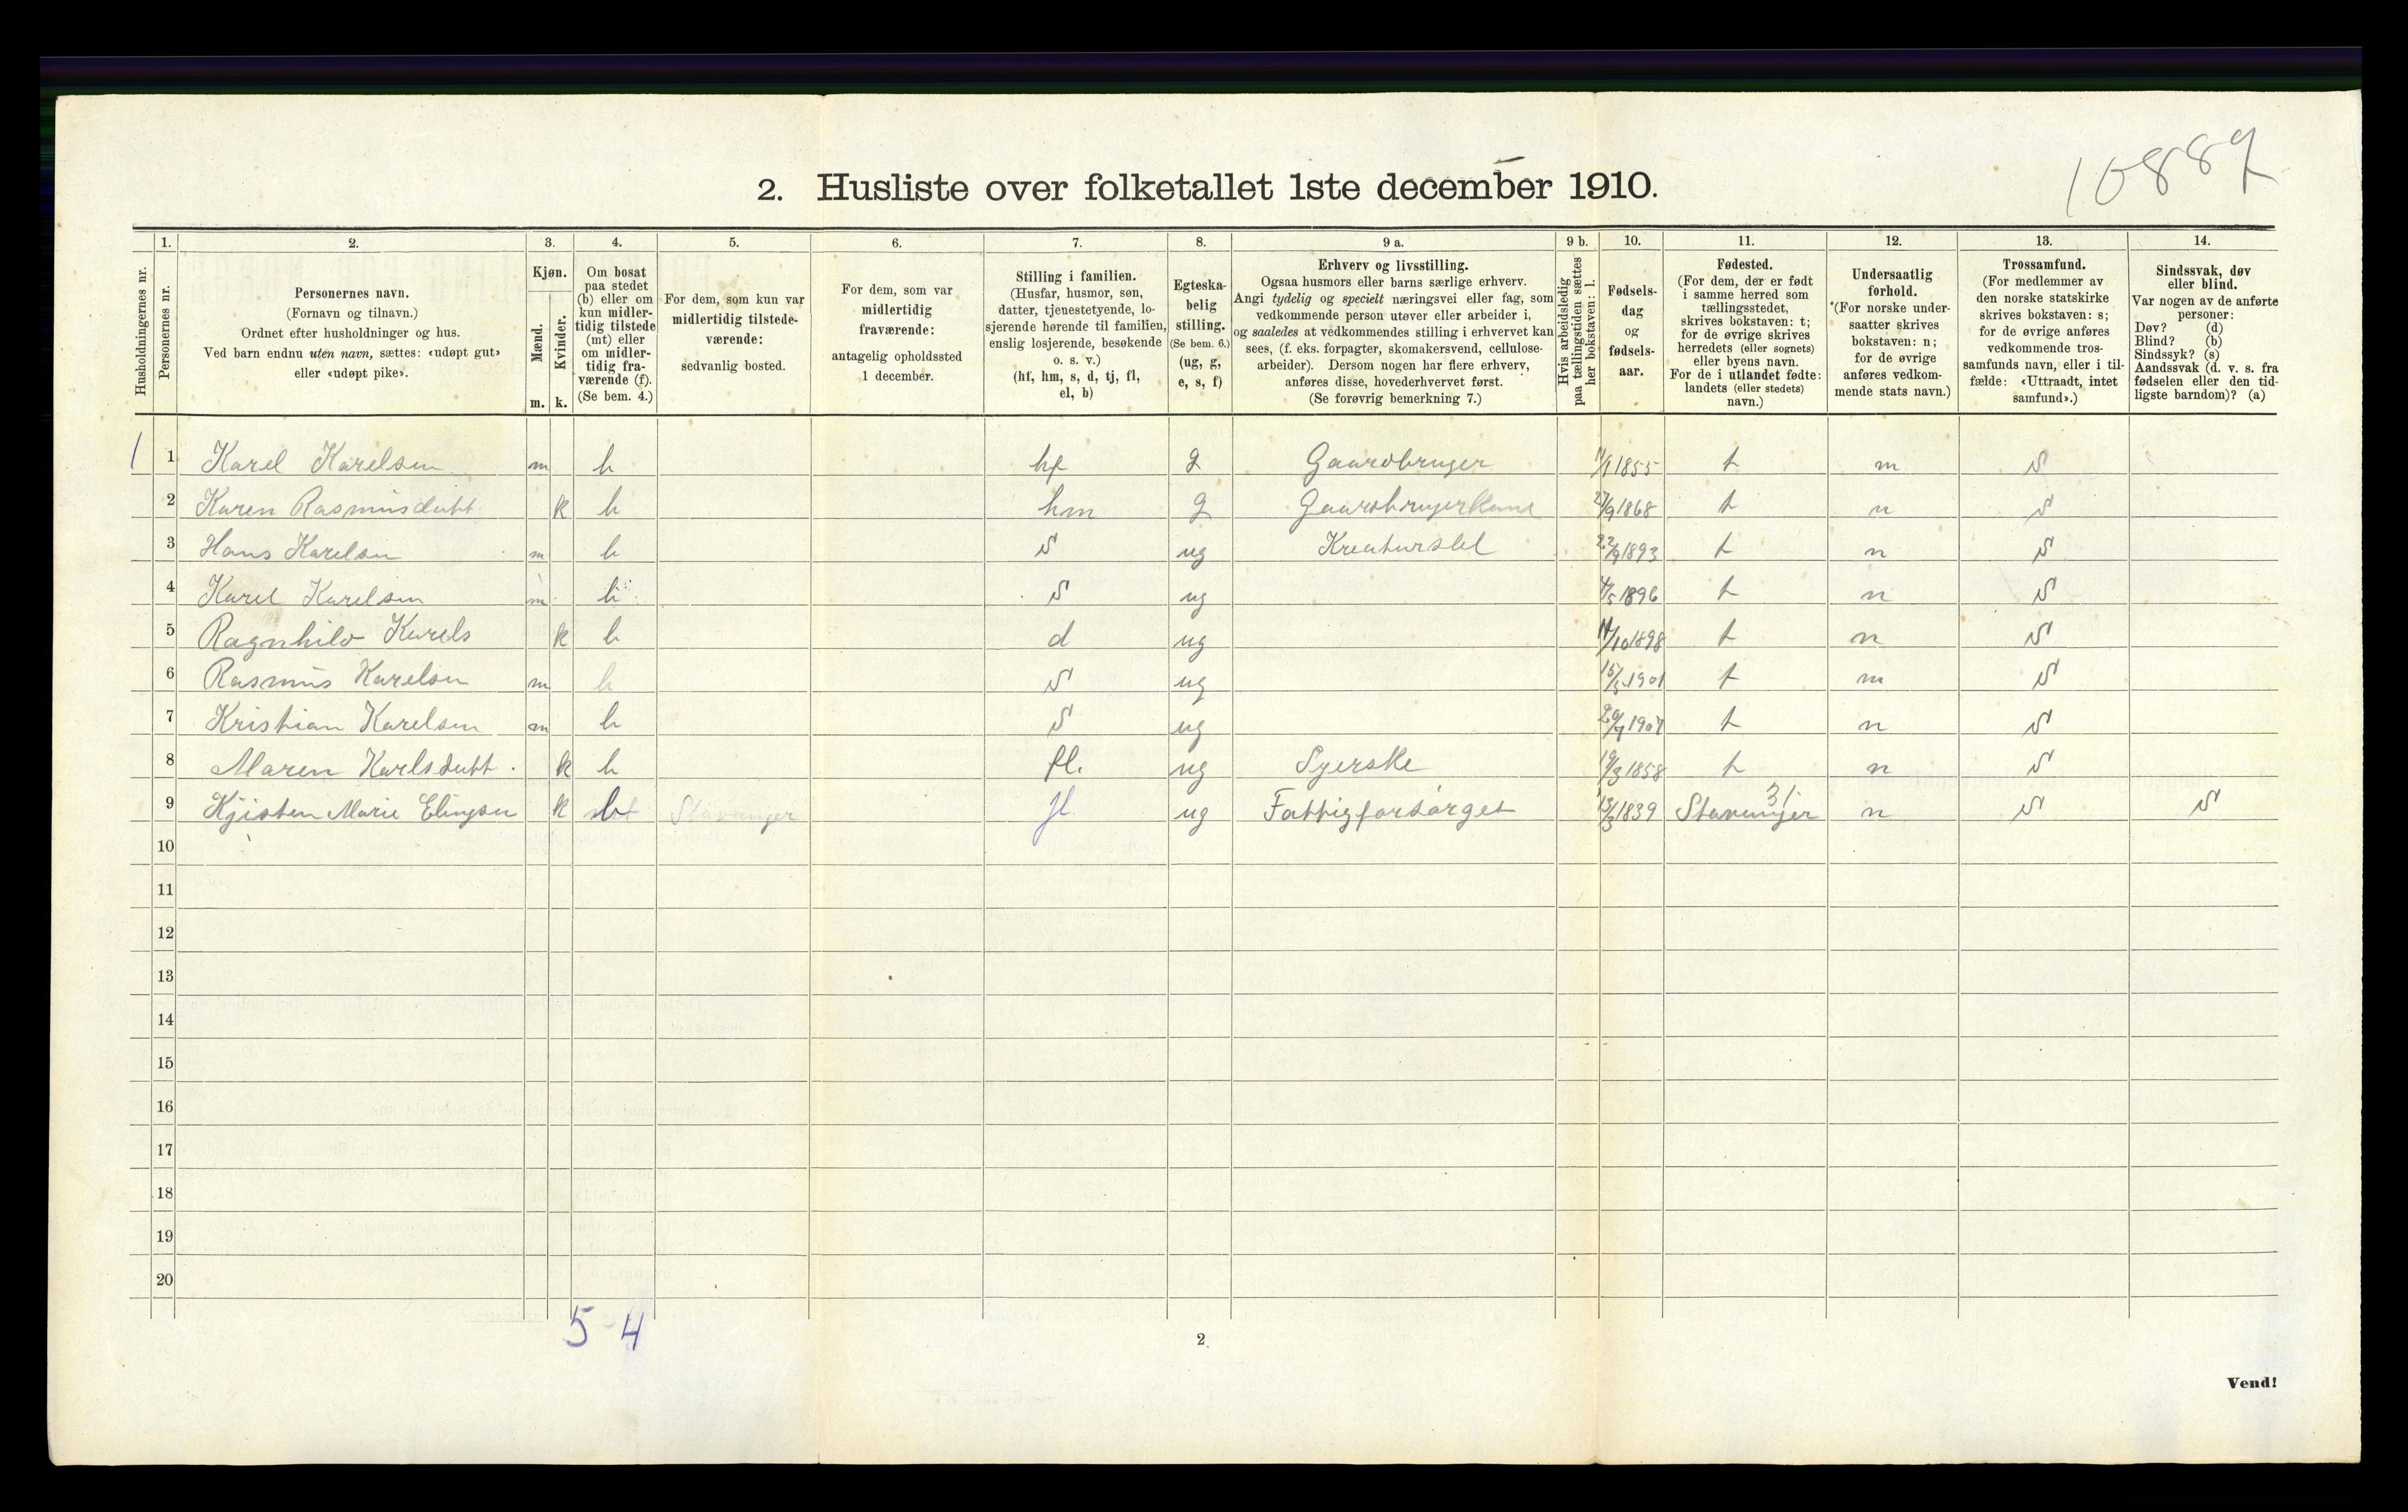 10889
2. Husliste over folketallet 1ste december 1910.
1. 2. 3. 4. 5. 6. 7. 8. 9 a. 9 b. 10. 11. 12. 13. 14.
Husholdningernes nr.
Personernes nr.
Personernes navn.
(Fornavn og tilnavn.)
Ordnet efter husholdninger og hus.
Ved barn endnu uten navn, sættes: «udøpt gut»
eller «udøpt pike».
Kjøn.
Mænd.
Kvinder.
m. k.
Om bosat
paa stedet
(b) eller om
kun midler-
tidig tilstede
(mt) eller
om midler-
tidig fra-
værende (f).
(Se bem. 4.)
For dem, som kun var
midlertidig tilstede-
værende:
sedvanlig bosted.
For dem, som var
midlertidig
fraværende:
antagelig opholdssted
1 december.
Stilling i familien.
(Husfar, husmor, søn,
datter, tjenestetyende, lo-
sjerende hørende til familien,
enslig losjerende, besøkende
o. s. v.)
(hf, hm, s, d, tj, fl,
el, b)
Egteska-
belig
stilling.
(Se bem. 6.)
(ug, g,
e, s, f)
Erhverv og livsstilling.
Ogsaa husmors eller barns særlige erhverv.
Angi tydelig og specielt næringsvei eller fag, som
vedkommende person utøver eller arbeider i,
og saaledes at vedkommendes stilling i erhvervet kan
sees, (f. eks. forpagter, skomakersvend, cellulose-
arbeider). Dersom nogen har flere erhverv,
anføres disse, hovederhvervet først.
(Se forøvrig bemerkning 7.)
Hvis arbeidsledig
paa tællingstiden sættes
her bokstaven: l.
Fødsels-
dag
og
fødsels-
aar.
Fødested.
(For dem, der er født
i samme herred som
tællingsstedet,
skrives bokstaven: t;
for de øvrige skrives
herredets (eller sognets)
eller byens navn.
For de i utlandet fødte:
landets (eller stedets)
navn.)
Undersaatlig
forhold.
(For norske under-
saatter skrives
bokstaven: n;
for de øvrige
anføres vedkom-
mende stats navn.)
Trossamfund.
(For medlemmer av
den norske statskirke
skrives bokstaven: s;
for de øvrige anføres
vedkommende tros-
samfunds navn, eller i til-
fælde: «Uttraadt, intet
samfund».)
Sindssvak, døv
eller blind.
Var nogen av de anførte
personer:
Døv? (d)
Blind? (b)
Sindssyk? (s)
Aandssvak (d. v. s. fra
fødselen eller den tid-
ligste barndom)? (a)
1 1 Karel Karelsen m b hf g Gaardbruger 11/1 1855 t n s
2 Karen Rasmusdatt. k b hm g Gaardbrugerkone 27/9 1868 t n s
3 Hans Karelsen m b s ug Kreaturstel 22/9 1893 t n s
4 Karel Karelsen m b s ug 4/5 1896 t n s
5 Ragnhild Karels k b d ug 11/10 1898 t n s
6 Rasmus Karelsen m b s ug 15/5 1901 t n s
7 Kristian Karelsen m b s ug 1907 t n s
8 Maren Karlsdatt. k b fl. ug Syerske 1858 t n s
9 Kjisten Marie Elingsen k Stavanger fl ug Fattigforsørget 13/3 1839 Stavanger 31 n s s
10
11
12
13
14
15
16
17
18
19
20
5 - 4
2
Vend!